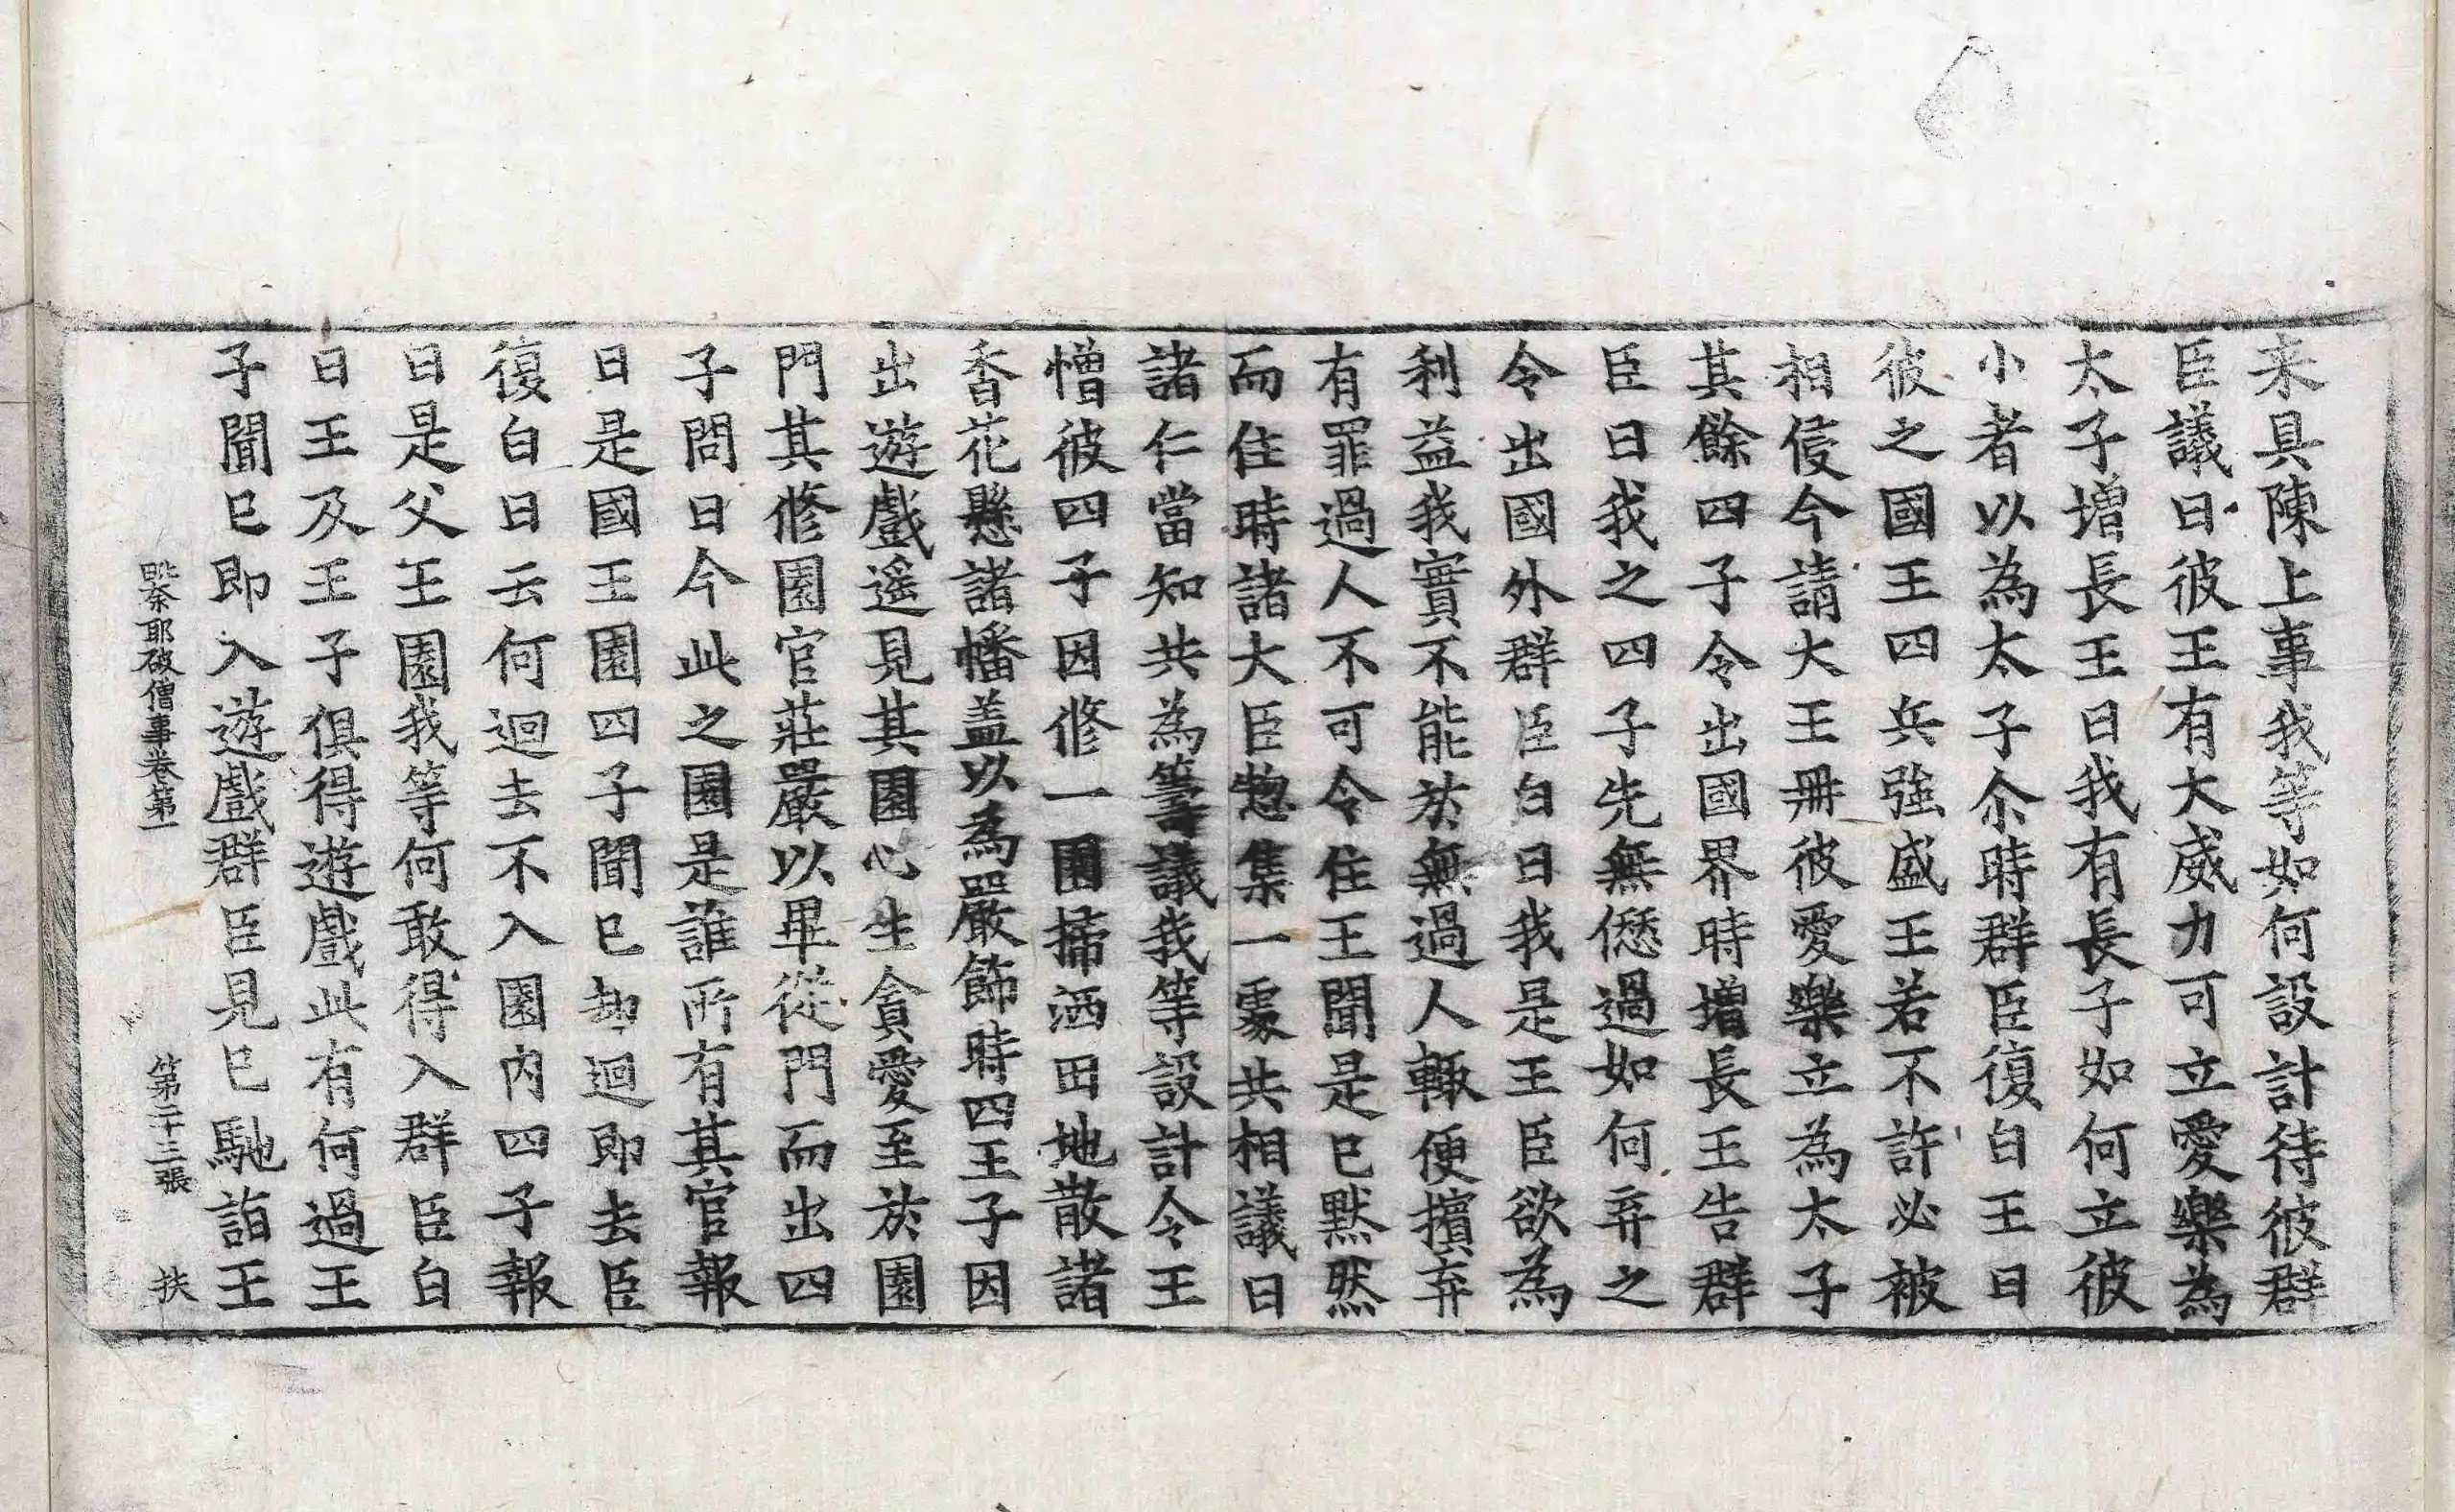 来具陳上事我等如何設計待彼群
臣議曰彼王有大威力可立愛樂為
太子增長王曰我有長子如何立彼
小者以為太子尒時群臣復白王曰
彼之國王四兵強盛王若不許必被
相侵今請大王冊彼愛樂立為太子
其餘四子令出國界時增長王告群
臣曰我之四子先無愆過如何弃之
令出國外群臣白曰我是王臣欲為
利益我實不能於無過人輙便擯弃
有罪過人不可令住王聞是已默然
而住時諸大臣惣集一處共相議曰
諸仁當知共為籌議我等設計令王
憎彼四子因修一園掃洒田地散諸
香花懸諸幡盖以為嚴飾時四王子因
出遊戲遥見其園心生貪愛至於園
門其修園官莊嚴以畢從門而出四
子問曰今此之園是誰所有其官報
曰是國王園四子聞已却迴即去臣
復白曰云何迴去不入園内四子報
曰是父王園我等何敢得入群臣白
曰王及王子俱得遊戲此有何過王
子聞已即入遊戲群臣見已馳詣王
毗奈耶破僧事卷第一 第二十三張 扶